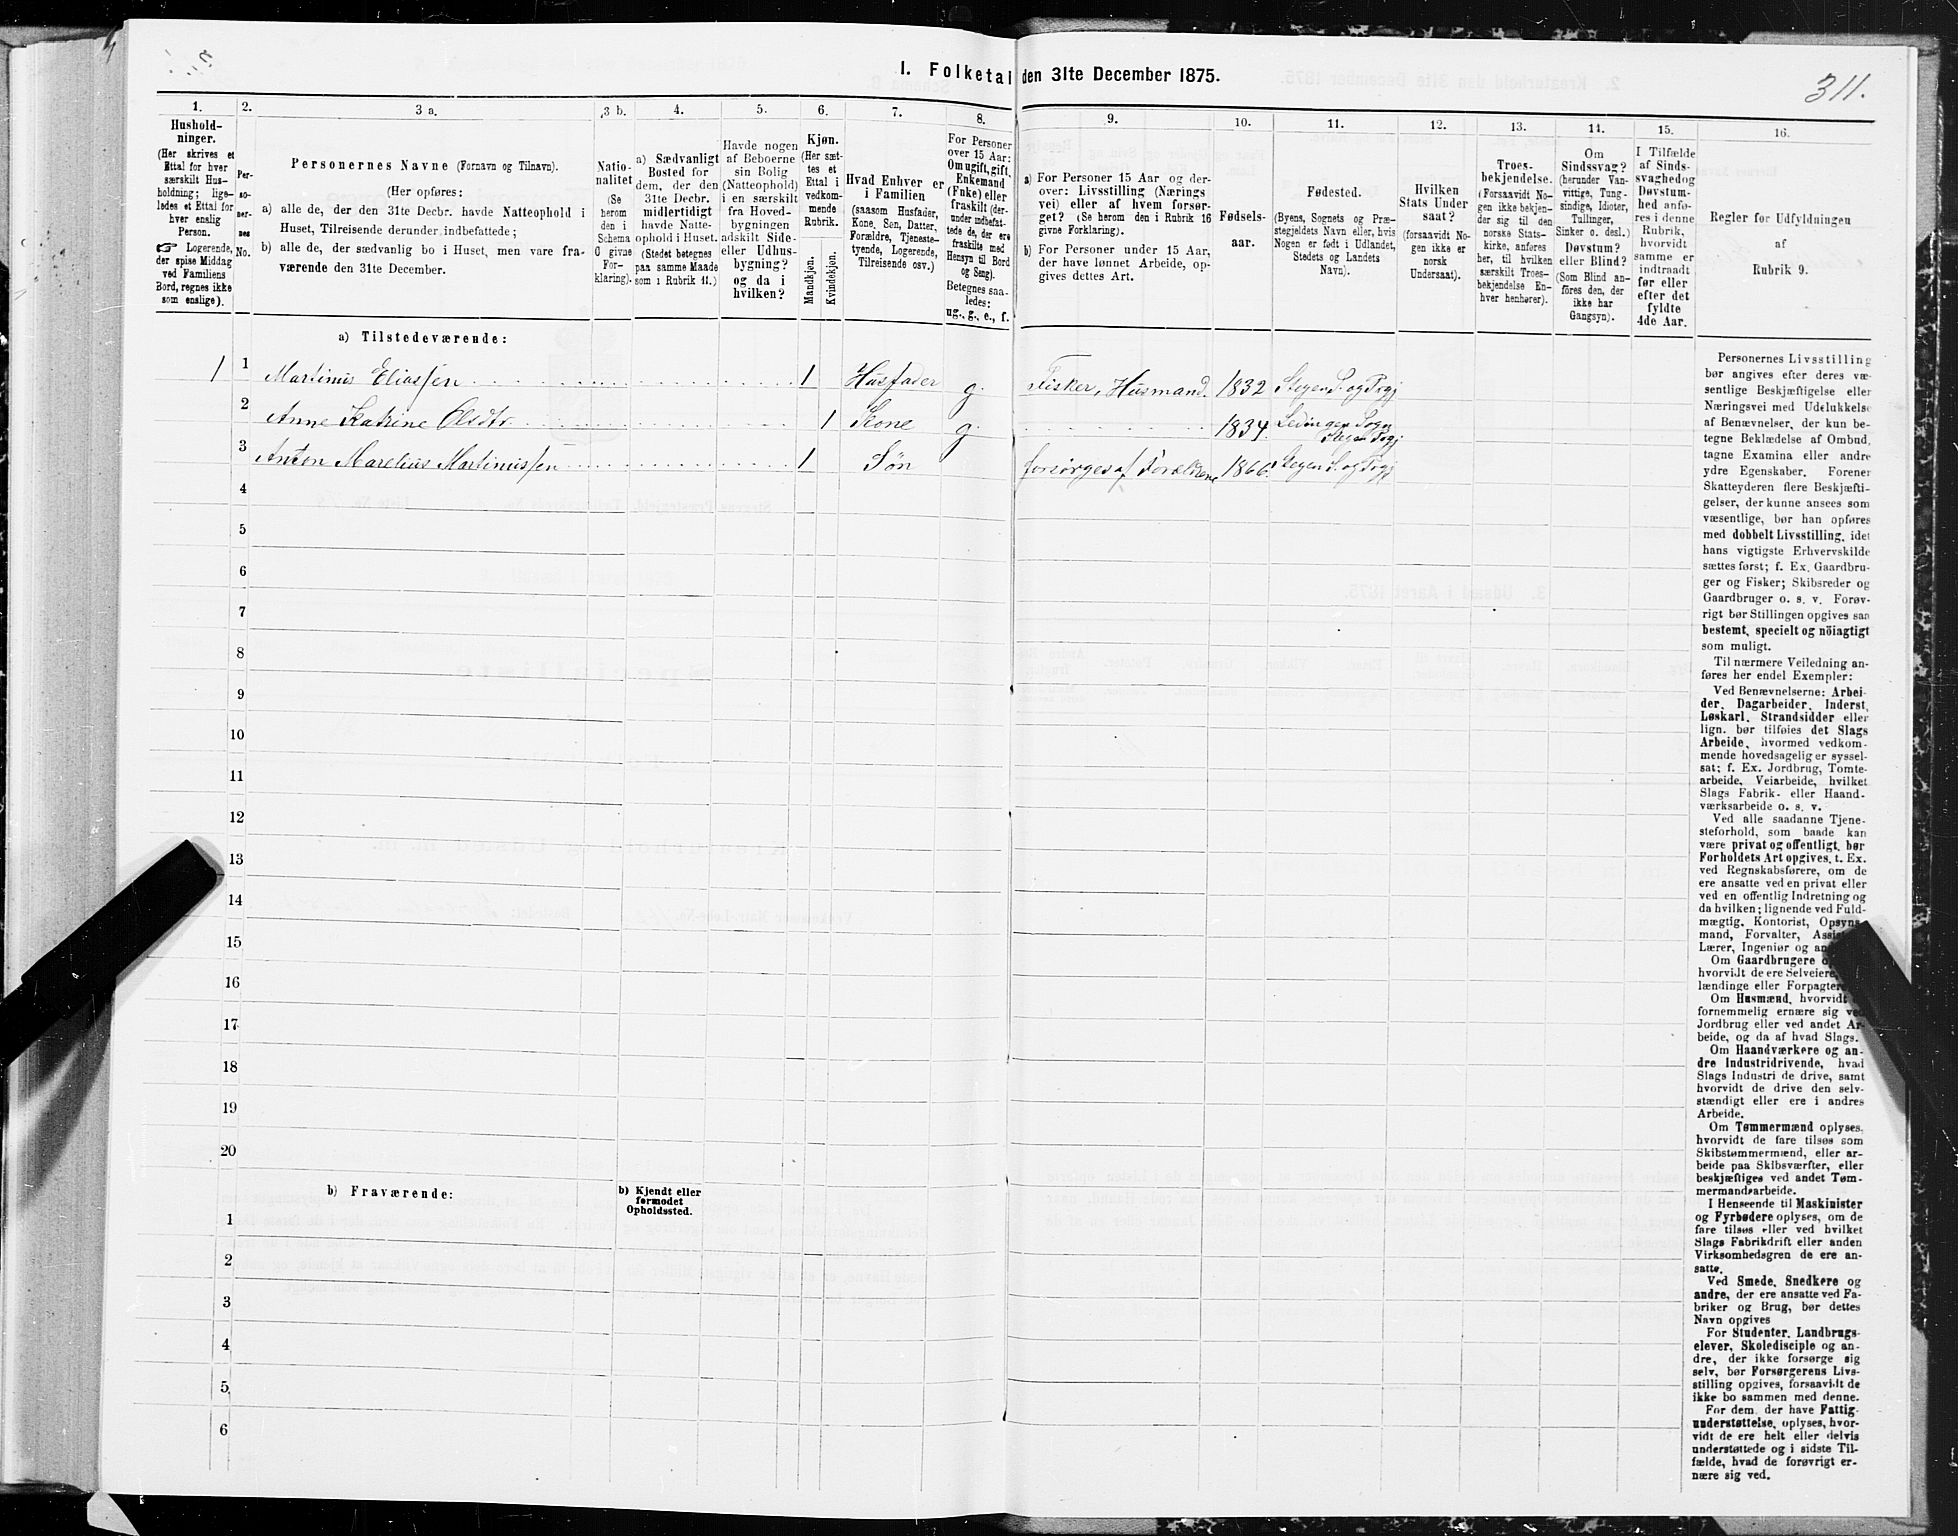 I. Folketal den 31te December 1875.
311.
1.
Hushold-
ninger.
(Her skrives et
Ettal for hver
særskilt Hus-
holdning; lige-
ledes et Ettal for
hver enslig
Person.
☞ Logerende,
der spise Middag
ved Familiens
Bord, regnes ikke
som enslige).
2.
Per-
so-
ner-
nes
No.
3 a.
Personernes Navne (Fornavn og Tilnavn).
(Her opføres:
a) alle de, der den 31te Decbr. havde Natteophold i
Huset, Tilreisende derunder indbefattede;
b) alle de, der sædvanlig bo i Huset, men vare fra-
værende den 31te December.
3 b.
Natio-
nalitet
(Se
herom
den i
Schema
O givne
For-
klaring).
4.
a) Sædvanligt
Bosted for
dem, der den
31te Decbr.
midlertidigt
havde Natte-
ophold i Huset.
(Stedet betegnes
paa samme Maade
som i Rubrik 11.)
5.
Havde nogen
af Beboerne
sin Bolig
(Natteophold)
i en særskilt
fra Hoved-
bygningen
adskilt Side-
eller Udhus-
bygning?
og da i
hvilken?
6.
Kjøn.
(Her sæt-
tes et
Ettal i
vedkom-
mende
Rubrik.
Mandkjøn.
Kvindekjøn.
7.
Hvad Enhver er
i Familien
(saasom Husfader,
Kone, Søn, Datter,
Forældre, Tjeneste-
tyende, Logerende,
Tilreisende osv.)
8.
For Personer
over 15 Aar:
Om ugift, gift,
Enkemand
(Enke) eller
fraskilt (der-
under indbefat-
tede de, der ere
fraskilte med
Hensyn til Bord
og Seng).
Betegnes saa-
ledes:
ug., g., e., f.
9.
a) For Personer 15 Aar og der-
over: Livsstilling (Nærings
vei) eller af hvem forsør-
get? (Se herom den i Rubrik 16
givne Forklaring).
b) For Personer under 15 Aar,
der have lønnet Arbeide, op-
gives dettes Art.
10.
Fødsels-
aar.
11.
Fødested.
(Byens, Sognets og Præ-
stegjeldets Navn eller, hvis
Nogen er født i Udlandet,
Stedets og Landets
Navn).
12.
Hvilken
Stats Under
saat?
(forsaavidt No-
gen ikke er
norsk
Undersaat).
13.
Troes-
bekjendelse.
(Forsaavidt No-
gen ikke bekjen-
der sig til den
norske Stats-
kirke, anføres
her, til hvilken
særskilt Troes-
bekjendelse En-
hver henhører).
14.
Om
Sindssvag?
(herunder Van-
vittige, Tung-
sindige, Idioter,
Tullinger,
Sinker o. desl.)
Døvstum?
eller Blind?
(Som Blind an-
føres den, der
ikke har
Gangsyn).
15.
I Tilfælde
af Sinds-
svaghed og
Døvstum-
hed anfø-
res i denne
Rubrik,
hvorvidt
samme er
indtraadt
før eller
efter det
fyldte
4de Aar.
16.
Regler for Udfyldningen
af
Rubrik 9.
a) Tilstedeværende:
1 1 Martinus Eliassen 1 Husfader g. Fisker, Husmand. 1832 Stegen S. og Prgj
2 Anne Katrine Olsdtr 1 Kone g. 1834. Lødingen Sogn
Stegen Prgj
3 Anton Marelius Martinussen 1 Søn forsørges af Forældrene 1866. Stegen S. og Prgj
4
5
6
7
8
9
10
11
12
13
14
15
16
17
18
19
20
b) Fraværende:
b) Kjendt eller
formodet
Opholdssted.
1
2
3
4
5
6
Personernes Livsstilling
bør angives efter deres væ-
sentlige Beskjæftigelse eller
Næringsvei med Udelukkelse
af Benævnelser, der kun be-
tegne Beklædelse af Ombud,
tagne Examina eller andre
ydre Egenskaber. Forener
Skatteyderen flere Beskjæfti-
gelser, der kunne ansees som
væsentlige, bør han opføres
med dobbelt Livsstilling, idet
hans vigtigste Erhvervskilde
sættes først; f. Ex. Gaardbru-
ger og Fisker; Skibsreder og
Gaardbruger o. s. v. Forøv-
rigt bør Stillingen opgives saa
bestemt, specielt og nöiagtigt
som muligt.
Til nærmere Veiledning an-
føres her endel Exempler:
Ved Benævnelserne: Arbei-
der, Dagarbeider, Inderst,
Løskarl, Strandsidder eller
lign. bør tilføies det Slags
Arbeide, hvormed vedkom-
mende hovedsagelig er syssel-
sat; f. Ex. Jordbrug, Tomte-
arbeide, Veiarbeide, hvilket
Slags Fabrik- eller Haand-
værksarbeide o. s. v.
Ved alle saadanne Tjene-
steforhold, som baade kan
være privat og offentligt, bør
Forholdets Art opgives, t. Ex.
ved Regnskabsførere, om de
ere ansatte ved en privat eller
ved en offentlig Indretning og
da hvilken; lignende ved Fuld-
mægtig, Kontorist, Opsyns-
mand, Forvalter,
Lærer, Ingeniør og
Om Gaardbrugere
hvorvidt de ere Selveiere,
lændinge eller Forpagtere.
Om Husmænd, hvorvidt
fornemmelig ernære sig ved
Jordbrug eller ved andet Ar-
beide, og da af hvad Slags.
Om Haandværkere og an-
dre Industridrivende, hvad
Slags Industri de drive, samt
hvorvidt de drive den selv-
stændigt eller ere i andres
Arbeide.
Om Tømmermænd oplyses,
hvorvidt de fare tilsøs som
Skibstømmermænd, eller ar-
beide paa Skibsværfter, eller
beskjæftiges ved andet Tøm-
mermandsarbeide.
I Henseende til Maskinister
og Fyrbødere oplyses, om de
fare tilsøs eller ved hvilket
Slags Fabrikdrift eller anden
Virksomhedsgren de ere an-
satte.
Ved Smede, Snedkere og
andre, der ere ansatte ved Fa-
briker og Brug, bør dettes
Navn opgives
For Studenter, Landbrugs-
elever, Skoledisciple og an-
dre, der ikke forsørge sig
selv, bør Forsørgerens Livs-
stilling opgives, forsaavidt de
ikke bo sammen med denne.
For dem, der have Fattig-
understøttelse, oplyses, hvor-
vidt de ere helt eller delvis
understøttede og i sidste Til-
fælde, hvad de forøvrigt er-
nære sig ved.